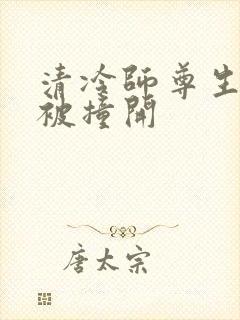 清冷师尊生
被撞开
唐太宗